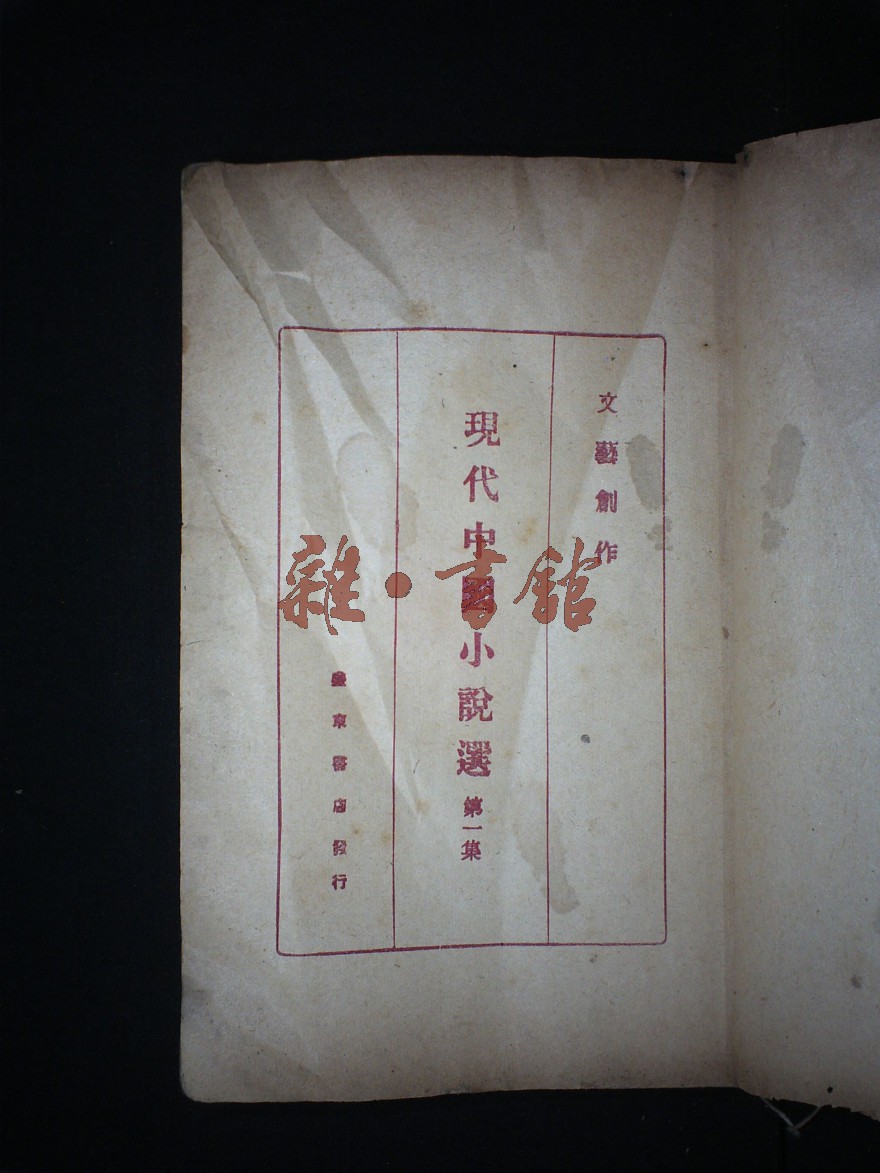 文藝創作
現代中國小說選 第一集
東書店發行
雜·書館